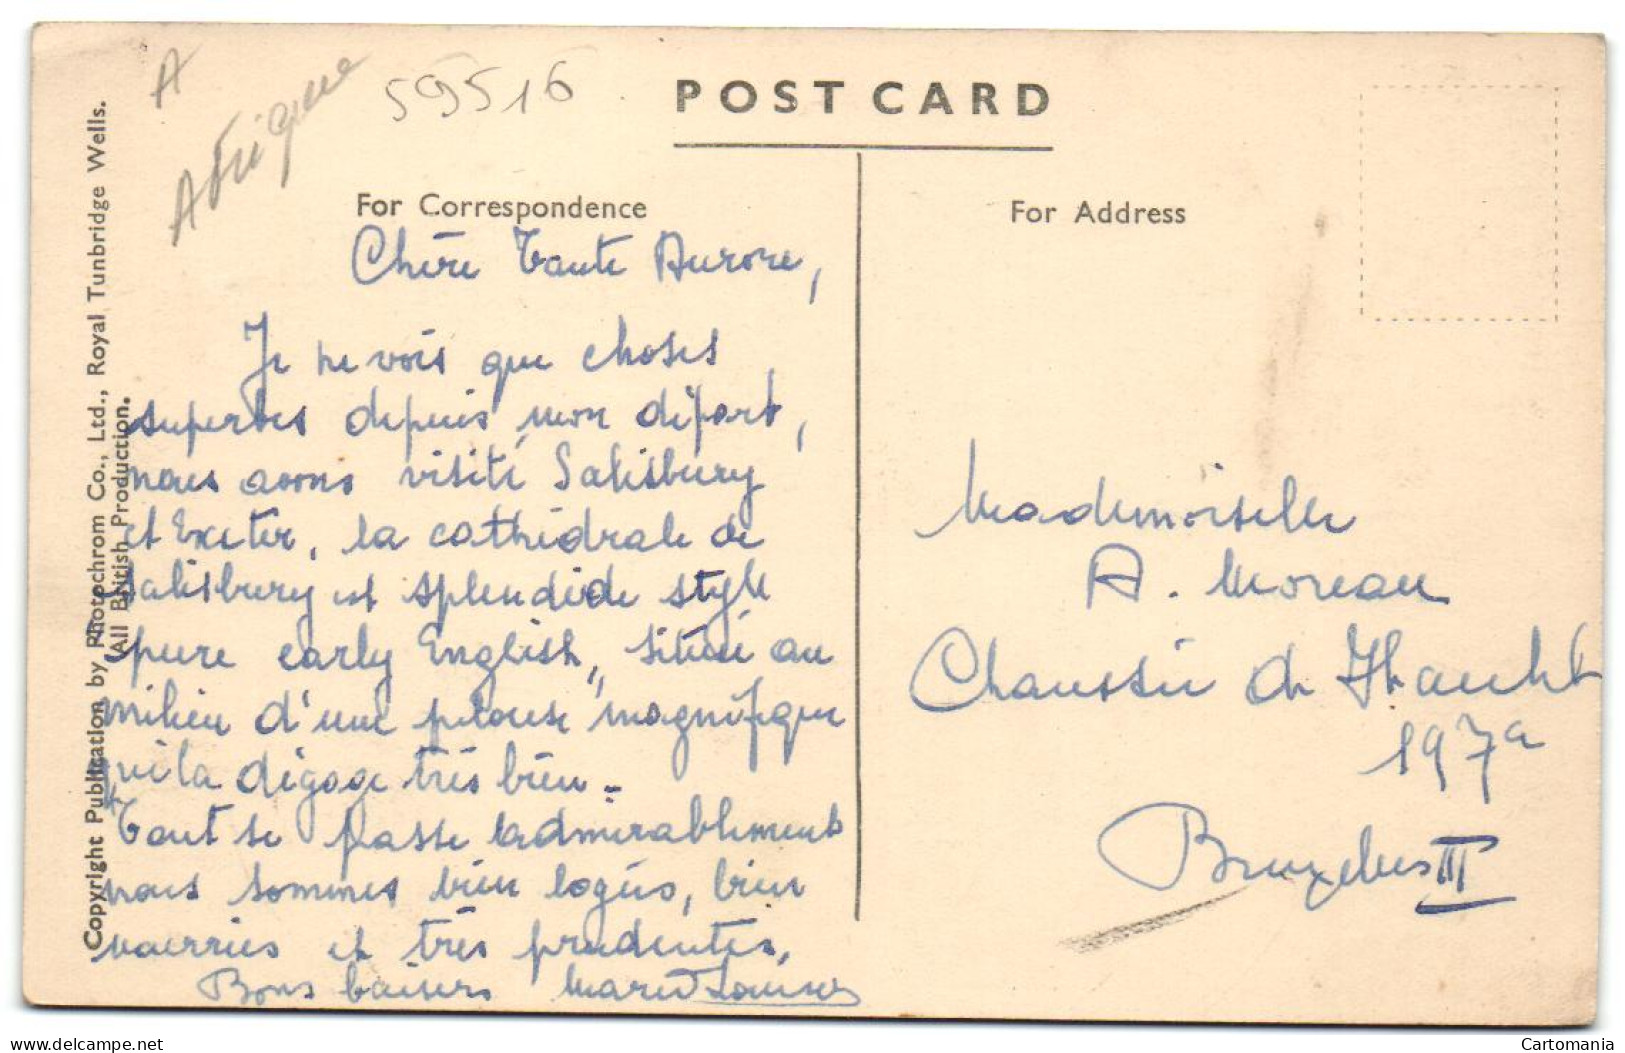 A
Afrique
59516
POST CARD
For Correspondence
For Address
Copyright Publication by Photochrom Co., Ltd., Royal Tunbridge Wells.
All British Production.
Chère Tante Aurore,
Je ne vois que choses
superbes depuis mon départ,
nous avons visité Salisbury
et Exeter, la cathédrale de
Salisbury est splendide style
pure early English, située au
milieu d'une pelouse magnifique
qui la dégage très bien.
Tout se passe admirablement
nous sommes bien logées, bien
nourries et très prudentes,
Bons baisers Marie Louise
Mademoiselle
A. Moreau
Chaussée de Haecht
197a
Bruxelles III
delcampe.net
Cartomania